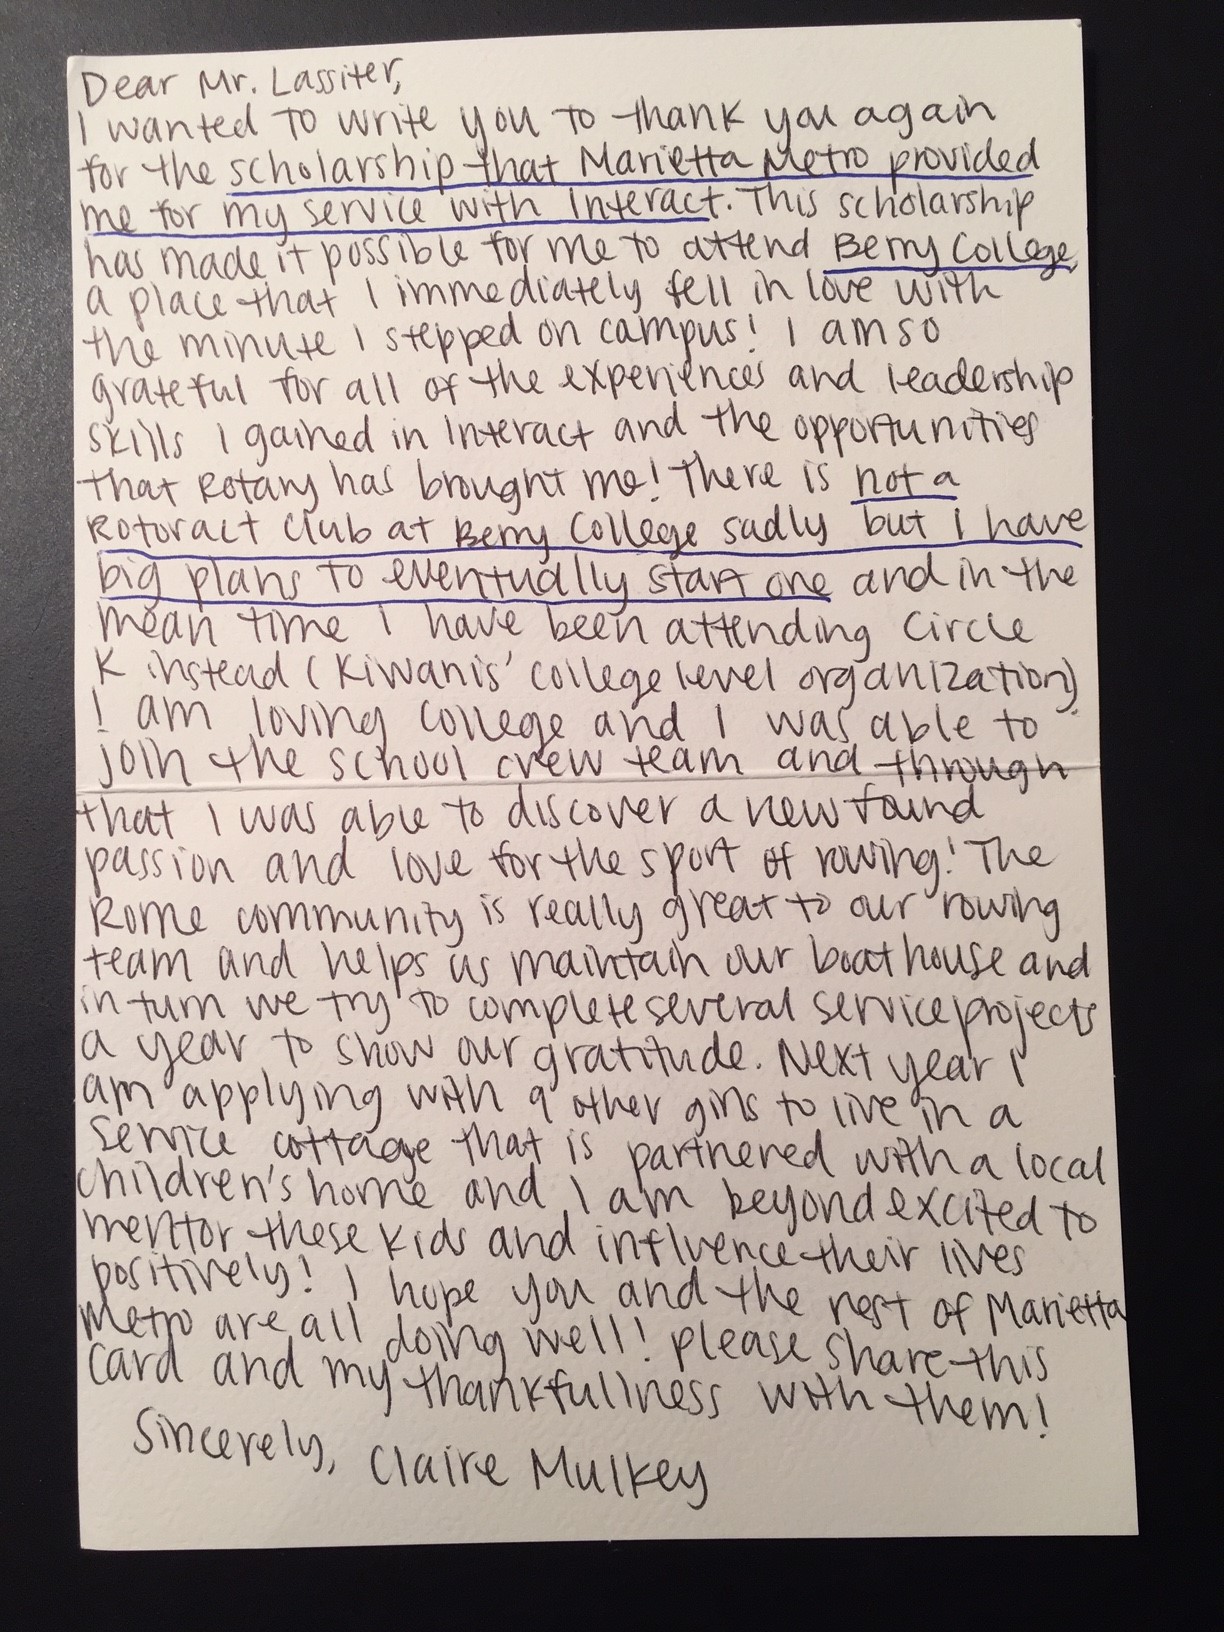 Dear Mr. Lassiter,
I wanted to write you to thank you again
for the scholarship that Marietta Metro provided
me for my service with Interact. This scholarship
has made it possible for me to attend Berry College,
a place that I immediately fell in love with
the minute I stepped on campus! I am so
grateful for all of the experiences and leadership
skills I gained in Interact and the opportunities
that Rotary has brought me! There is not a
Rotoract Club at Berry College sadly but I have
big plans to eventually start one and in the
mean time I have been attending Circle
K instead (Kiwanis' college level organization)
! I am loving college and I was able to
join the school crew team and through
that I was able to discover a new found
passion and love for the sport of rowing! The
Rome community is really great to our rowing
team and helps us maintain our boat house and
in turn we try to complete several service projects
a year to show our gratitude. Next year I
am applying with 9 other girls to live in a
service cottage that is partnered with a local
children's home and I am beyond excited to
mentor these kids and influence their lives
positively! I hope you and the rest of Marietta
Metro are all doing well! Please share this
card and my thankfullness with them!
Sincerely, Claire Mulkey